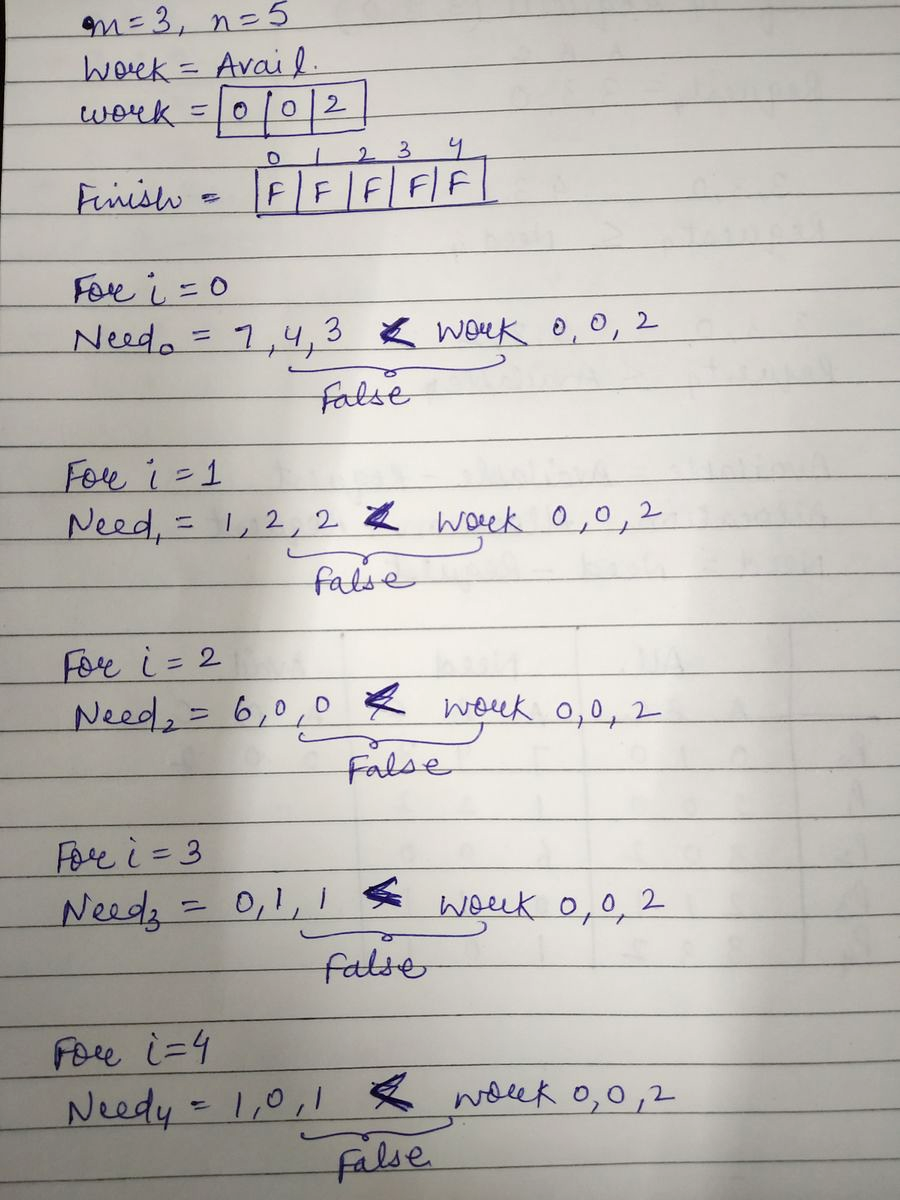 m=3, n=5
Work = Avail.
work = 0 0 2
0 1 2 3 4
Finish = F F F F F
For i = 0
Need₀ = 7,4,3 < work 0,0,2
False
For i = 1
Need₁ = 1,2,2 < work 0,0,2
False
For i = 2
Need₂ = 6,0,0 < work 0,0,2
False
For i = 3
Need₃ = 0,1,1 < work 0,0,2
False
For i=4
Need₄ = 1,0,1 < work 0,0,2
False